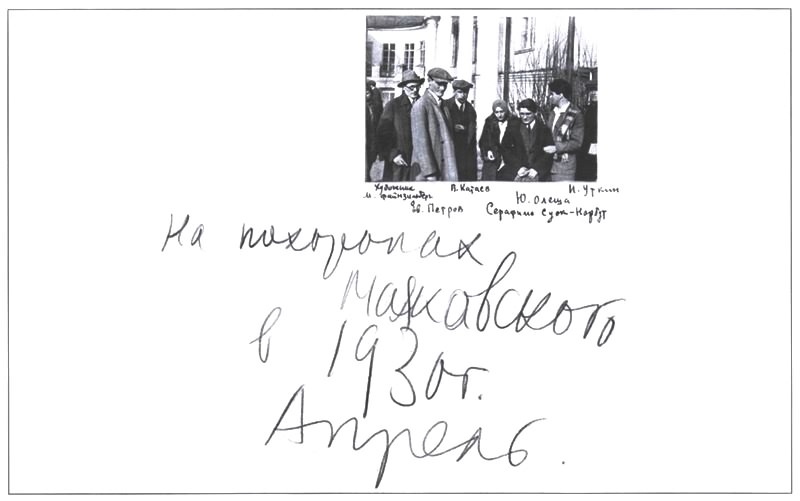 Художник В. Катаев И. Уткин
М. Файнзильберг Ю. Олеша
Ев. Петров Серафима Суок-Нарбут
На похоронах
Маяковского
в 1930г.
Апрель.